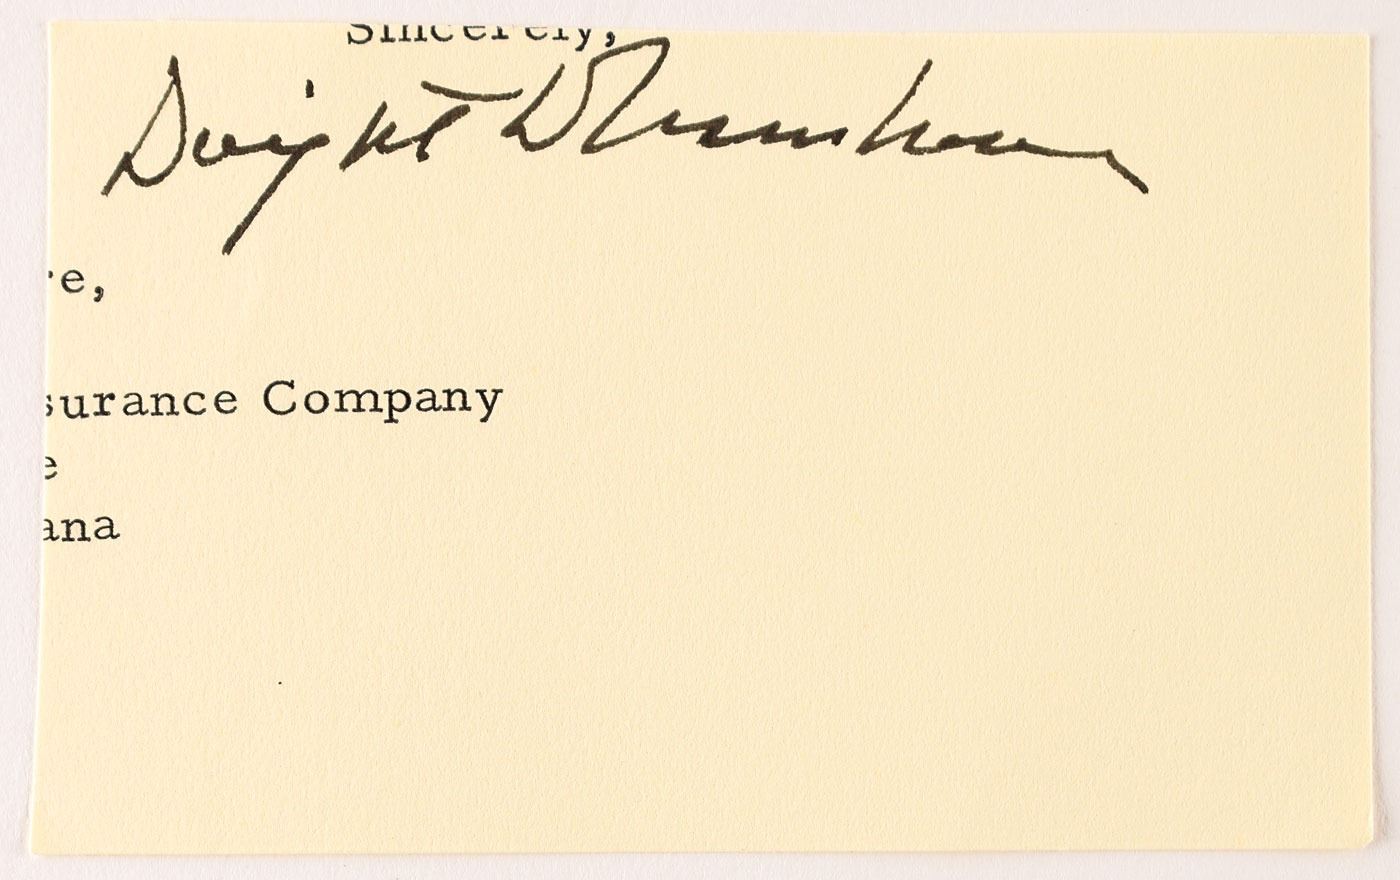 Sincerely,
Dwight D Eisenhower
re,
surance Company
e
ana